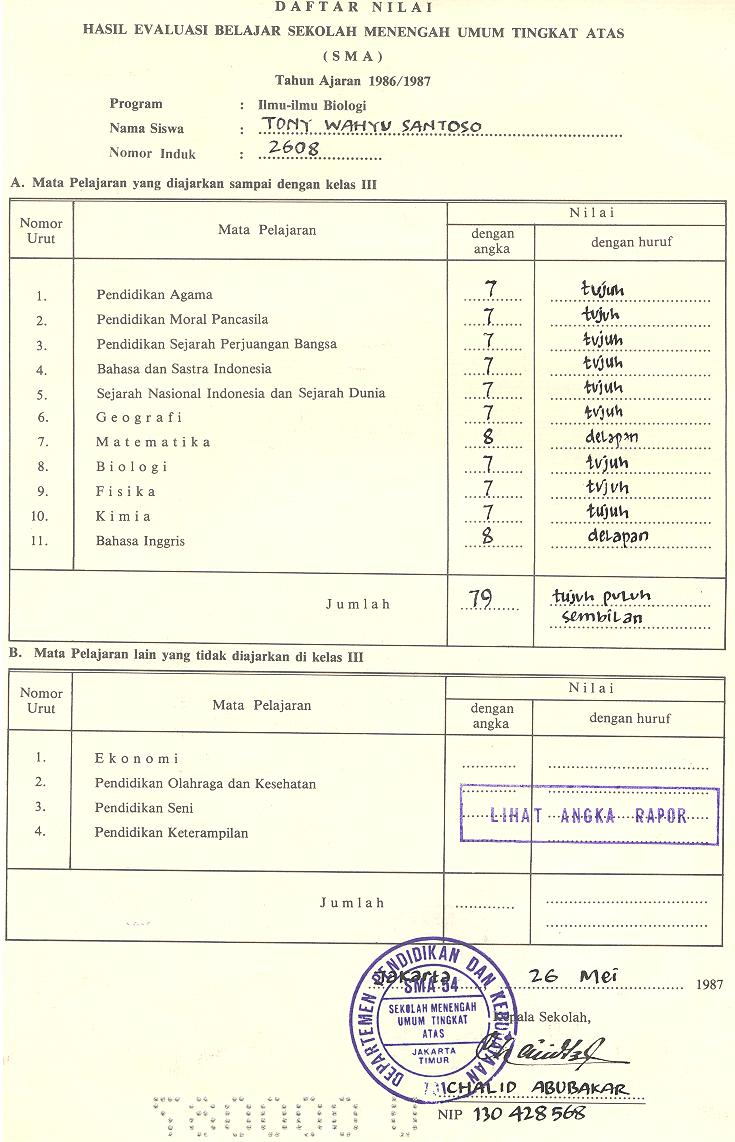 DAFTAR NILAI
HASIL EVALUASI BELAJAR SEKOLAH MENENGAH UMUM TINGKAT ATAS
(SMA)
Tahun Ajaran 1986/1987
Program : Ilmu-ilmu Biologi
Nama Siswa : TONY WAHYU SANTOSO
Nomor Induk : 2608
A. Mata Pelajaran yang diajarkan sampai dengan kelas III
Nomor Urut Mata Pelajaran Nilai
dengan angka dengan huruf
1. Pendidikan Agama 7 tujuh
2. Pendidikan Moral Pancasila 7 tujuh
3. Pendidikan Sejarah Perjuangan Bangsa 7 tujuh
4. Bahasa dan Sastra Indonesia 7 tujuh
5. Sejarah Nasional Indonesia dan Sejarah Dunia 7 tujuh
6. Geografi 7 tujuh
7. Matematika 8 delapan
8. Biologi 7 tujuh
9. Fisika 7 tujuh
10. Kimia 7 tujuh
11. Bahasa Inggris 8 delapan
Jumlah 79 tujuh puluh
sembilan
B. Mata Pelajaran lain yang tidak diajarkan di kelas III
Nomor Urut Mata Pelajaran Nilai
dengan angka dengan huruf
1. Ekonomi
2. Pendidikan Olahraga dan Kesehatan
3. Pendidikan Seni
LIHAT ANGKA RAPOR
4. Pendidikan Keterampilan
Jumlah
Jakarta, 26 Mei 1987
DEPARTEMEN PENDIDIKAN DAN KEBUDAYAAN
SMA 54
SEKOLAH MENENGAH
UMUM TINGKAT
ATAS
JAKARTA
TIMUR
Kepala Sekolah,
CHALID ABUBAKAR
NIP 130 428 568